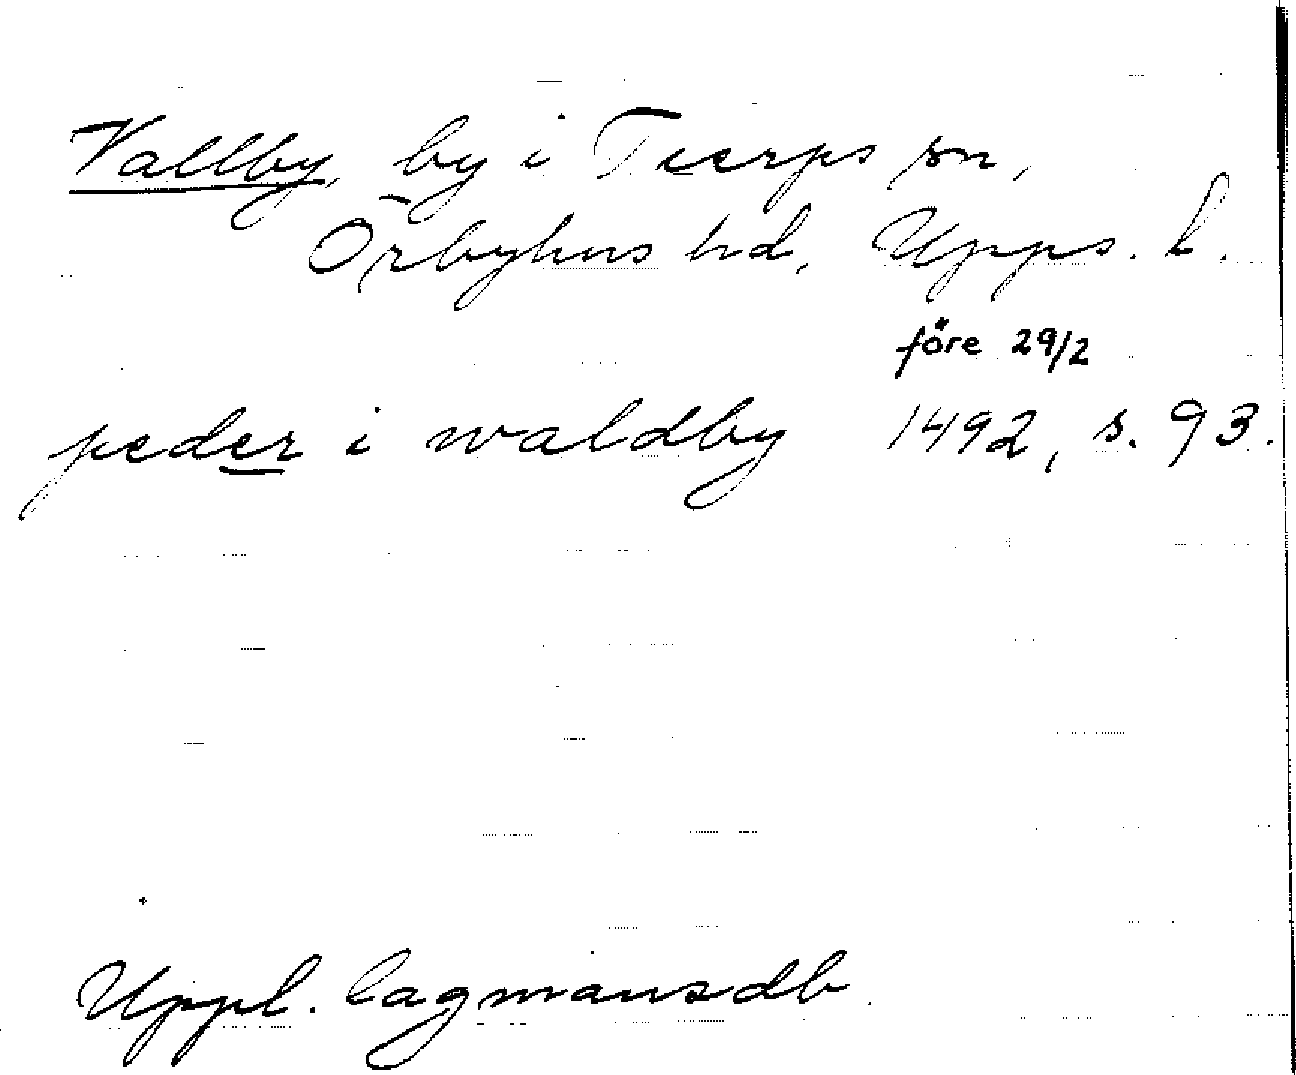 Vallby, by i Tierps sn,
Örbyhus hd, Upps. l.
före 29/2
peder i waldby 1492, s. 93.
Uppl. lagmansdb